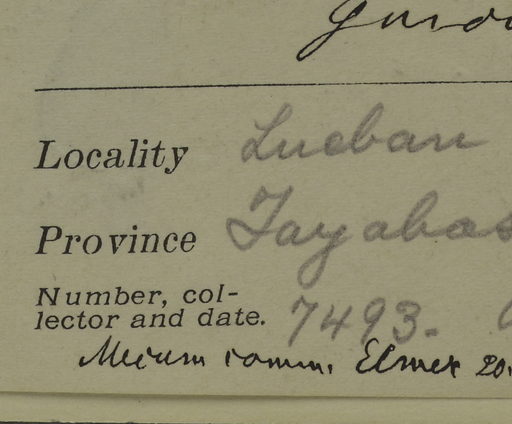 Locality Lucban
Province Tayabas
Number, col-
lector and date. 7493.
comm. Elmer 20.